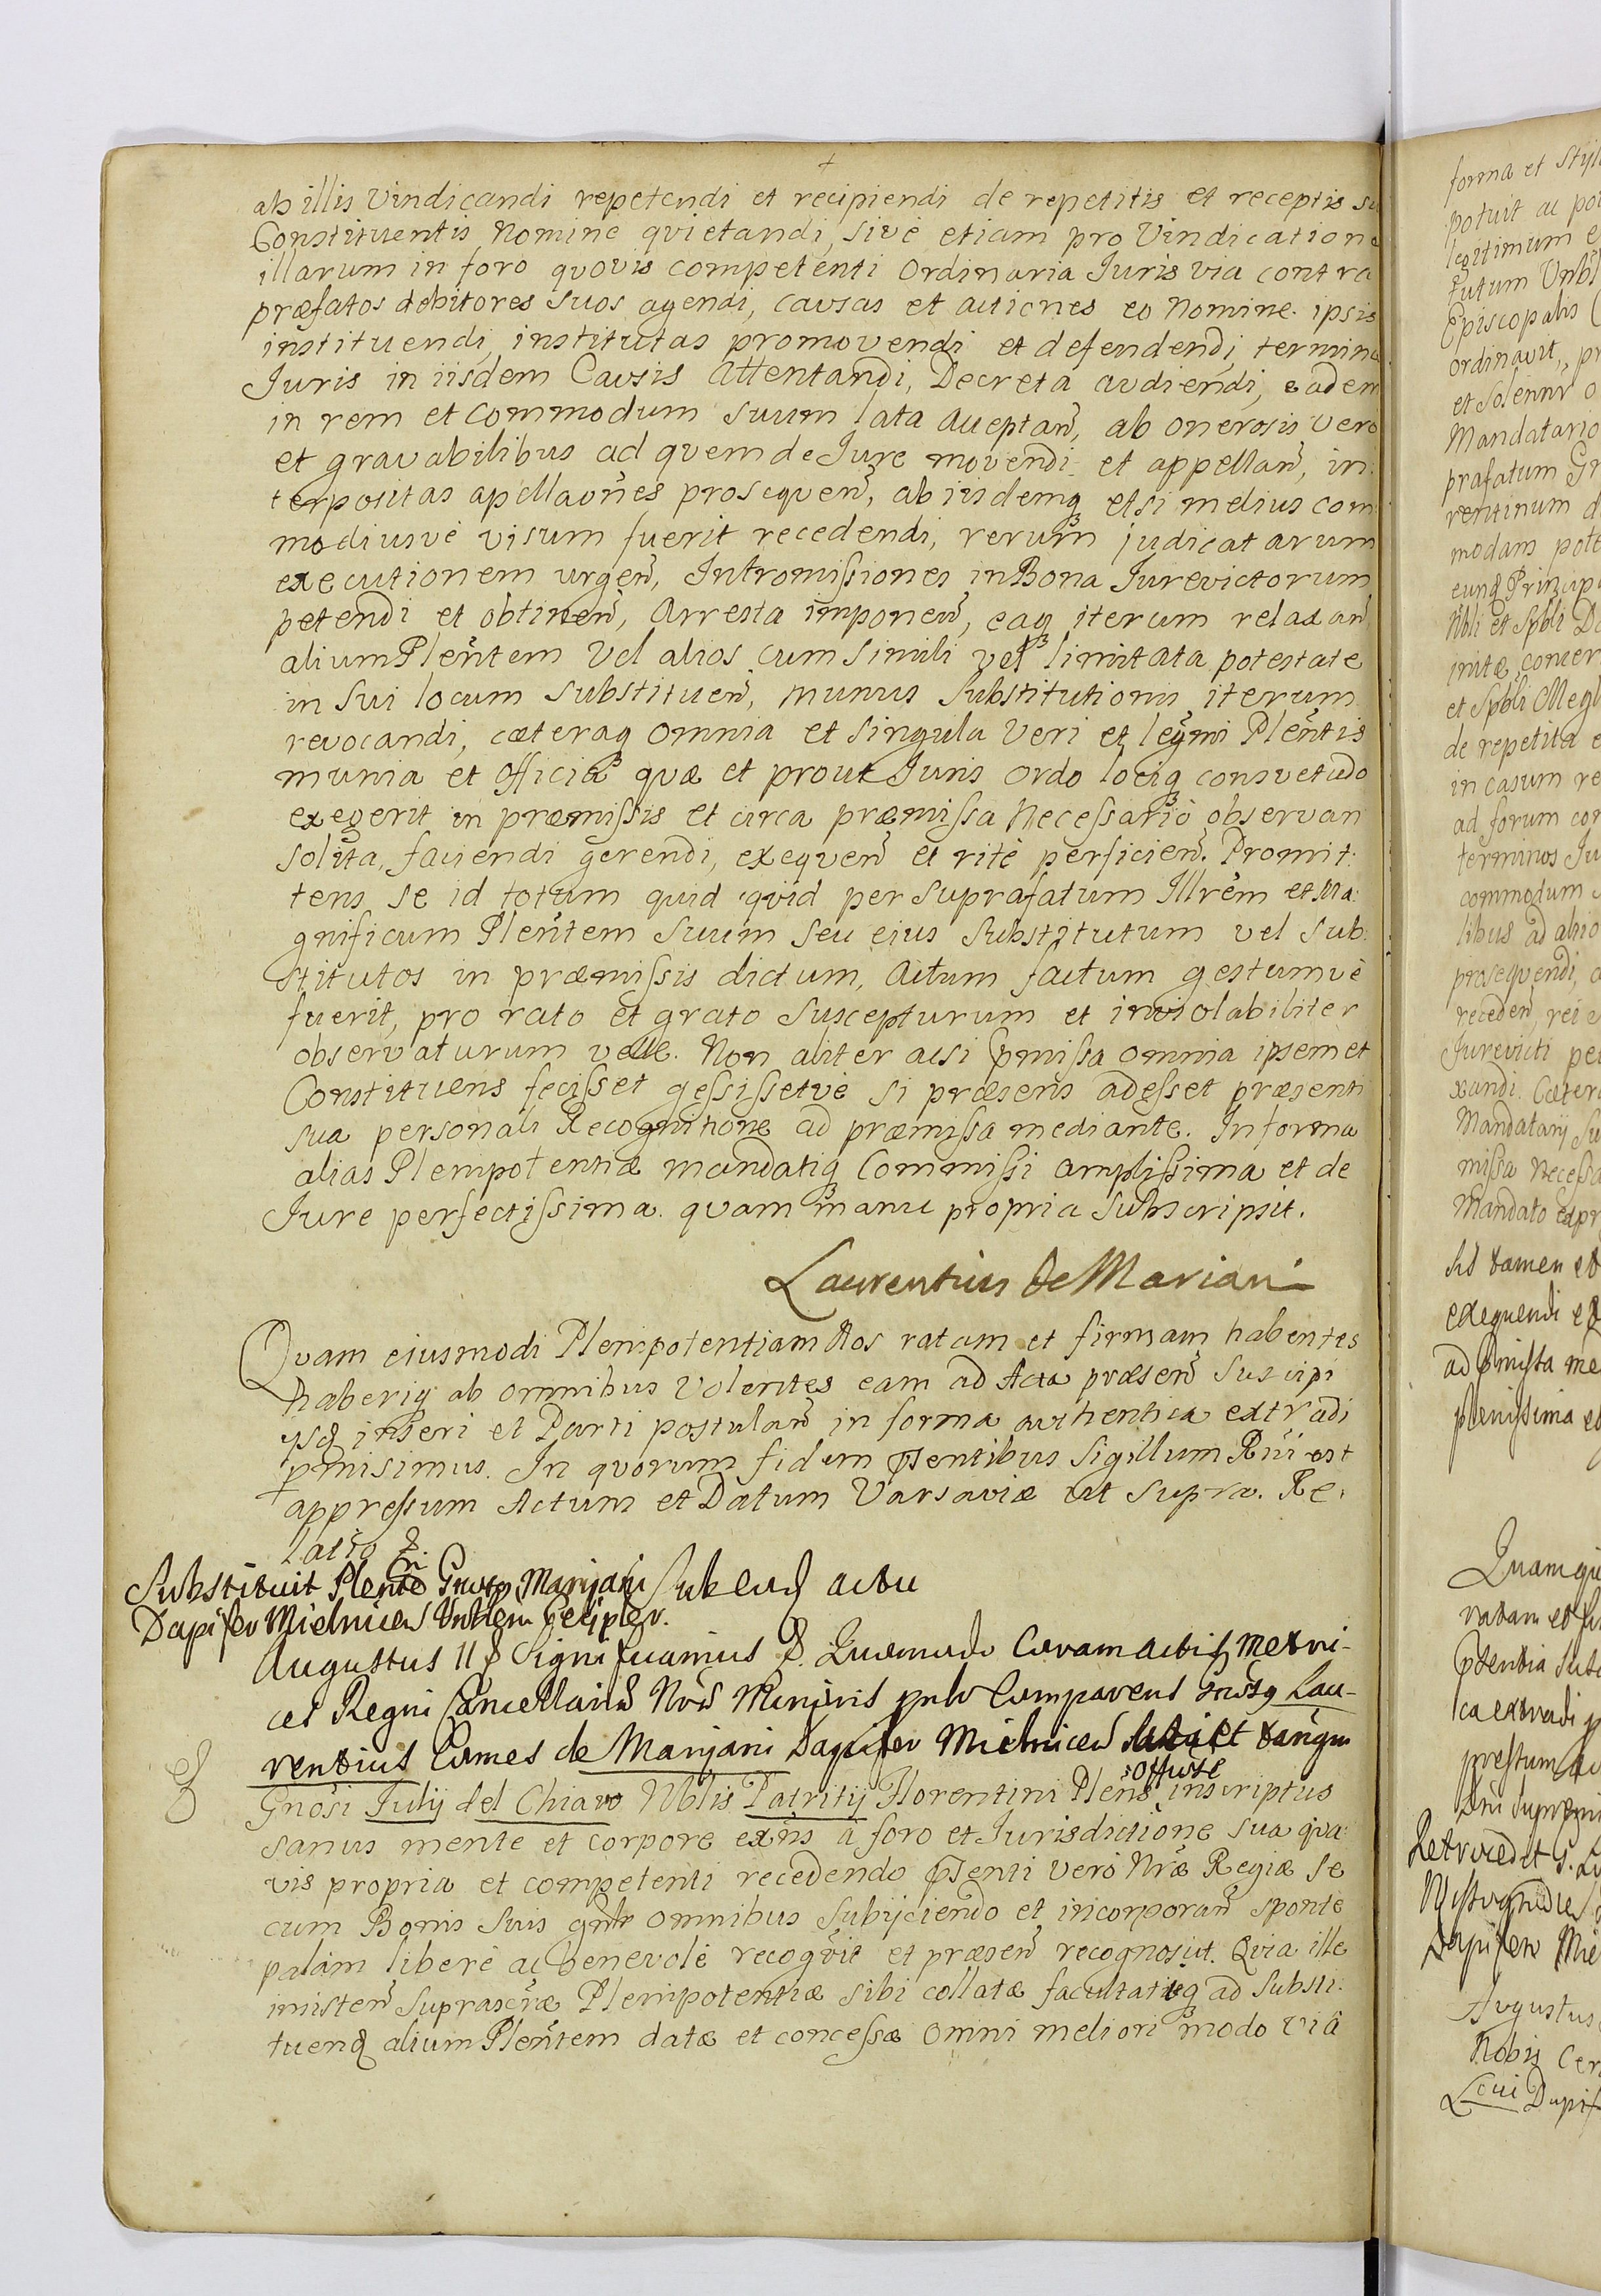 ab illis Vindicandi repetendi et recipiendi de repetitis et receptis su
Constituentis Nomine qvietandi, sive etiam pro Vindicatione
illarum in foro qvovis competenti Ordinaria Iuris via contra
præfatos debitores suos agendi, cavsas et actiones eo Nomine ipsis
instituendi, institutas promovendi et defendendi termina
Juris in iisdem Cavsis Attentandi, Decreta avdiendi, eadem
in rem et Commodum suum lata acceptan̄, ab onerosis vero
et gravabilibus ad qvem de Jure movendi et appellan̄, in:
terpositas apellaōnes proseqven̄, ab iisdemq̨ etsi melius com
modiusvè visum fuerit recedendi, rerum judicatarum
executionem urgen̄, Intromissiones in Bona Jurevictorum
petendi et obtinen̄, Arresta imponen̄, eaq̨ iterum relaxan̄
alium Plen̄tem Vel alios cum simili vel limitata potestate
in sui locum substituen̄, munus substitutionis iterum
revocandi, cæteraq̨ omnia et singula Veri et legm̄i Plēntis
munia et Officia quæ et prout Juris Ordo lociq̨ consvetudo
exegerit in præmissis et circa præmissa Necessariò observan
solita, faciendi gerendi, exeqven̄ et ritè perficien̄. Promit:
tens se id totum quid qvid per suprafatum Illrēm et Ma:
gnificum Plen̄tem suum seu ejus Substitutum vel sub:
stitutos in præmissis dictum, Actum factum gestumvè
fuerit, pro rato et grato suscepturum et inviolabiliter
observaturum velle. Non aliter acsi p̄missa omnia ipsemet
Constituens fecisset gessissetvè si præsens adesset præsenti
sua personali Recognitione ad præmissa mediante. In forma
alias Plenipotentiæ mandatiq̨ Commissi amplissima et de
Jure perfectissima. qvam manu propria Subscripsit.
Laurentius de Mariani
Qvam ejusmodi Plenipotentiam Nos ratam et firmam habentes
haberiq̨ ab omnibus Volentes eam ad Acta præsen̄ Suscipi
ysq̨ inseri et Parti postulan̄ in forma avthentica extradi
p̄misimus. In qvorum fidem p̄sentibus Sigillum Rn̄i est
appressum Actum et Datum Varsaviæ ut supra. Re:
latio &.
Substituit Plente Gnosus Marijani sub eod actu
Dapifer Mielnicen
Augustus II & Significamus &. Quomodo Coram actis Metri-
ces Regni Cancellariæ Nræ Minoris pnlr Comparens Gnōsq Lau-
rentius Comes de Marijani Dapifer Mielnicen et tanqm
offoste
Gnōsi Julij del Chiaro Nblis Patritij Florentini Plens inscriptus
sanus mente et corpore exīns à foro et Jurisdictione sua qva:
vis propria et competenti recedendo p̄senti verò Nr̄æ Regiæ se
cum Bonis suis gn̄lr omnibus subijciendo et incorporan̄ sponte
palàm liberè ac benevolè recogvit et præsen̄ recognoscit. Qvia ille
inisten̄ suprascr̄æ Plenipotentiæ sibi collatæ facultatisq̨ ad substi:
tuenḍ alium Plen̄tem datæ et concessæ omni meliori modo viâ
forma et Styl
potuit ac po
legitimum e
Episcopalis
ordinavit, pr
et solenni o
Mandatario
prafatum Gn
rentinum d
modam pote
eunq̨ Princip
Nbli et Spbli Do
initæ, concer
et Spbli Megl
de repetita e
in casum re
ad forum com
terminos Ju
commodum
libus ad alio
proseqvendi, a
receden̄, rei
Jurevicti pe
xandi. Cæter
Mandatarij su
missa Necessa
Mandato expr
sis tamen et
exequendi et
ad p̄missa me
plenissima et
Quam qui
ratam et fi
ca extradi p
pressum Ac
Dapifer Mie
Augustus
Nobis Cer
Dapif